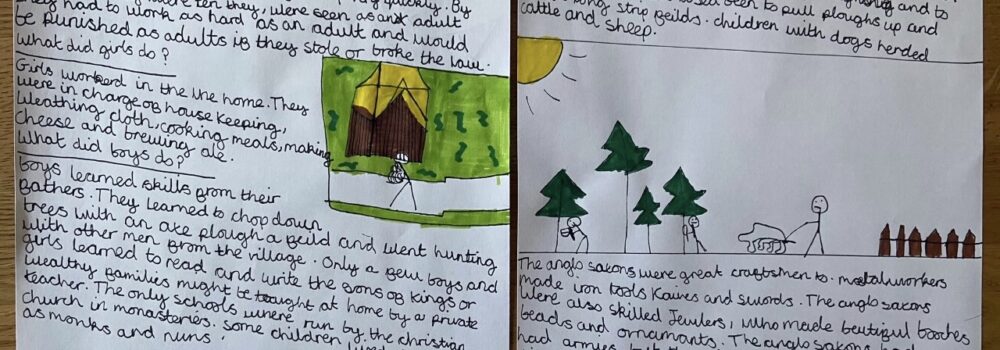 quickly. By
were ten they, were seen as an adult
They had to work as hard as an adult and would
be punished as adults if they stole or broke the law.
What did girls do?
Girls worked in the the home. They
were in charge of house keeping,
Weathing cloth, cooking meals, making
cheese and brewing ale.
What did boys do?
boys learned skills from their
fathers. They learned to chop down
trees with an axe plough a feild and went hunting
with other men from the village. Only a few boys and
girls learned to read and write the sons of kings or
wealthy families might be taught at home by a private
teacher. The only schools where run by the christian
church in monasteries. Some children
as monks and nuns.
and to
seen to pull ploughs up and
strip feilds. children with dogs herded
cattle and sheep.
The anglo saxons were great craftsmen to. metalworkers
made iron tools Knives and swords. The anglo saxons
were also skilled Jewlers, who made beutiful brooches
beads and ornamants. The anglo saxons had
had armies